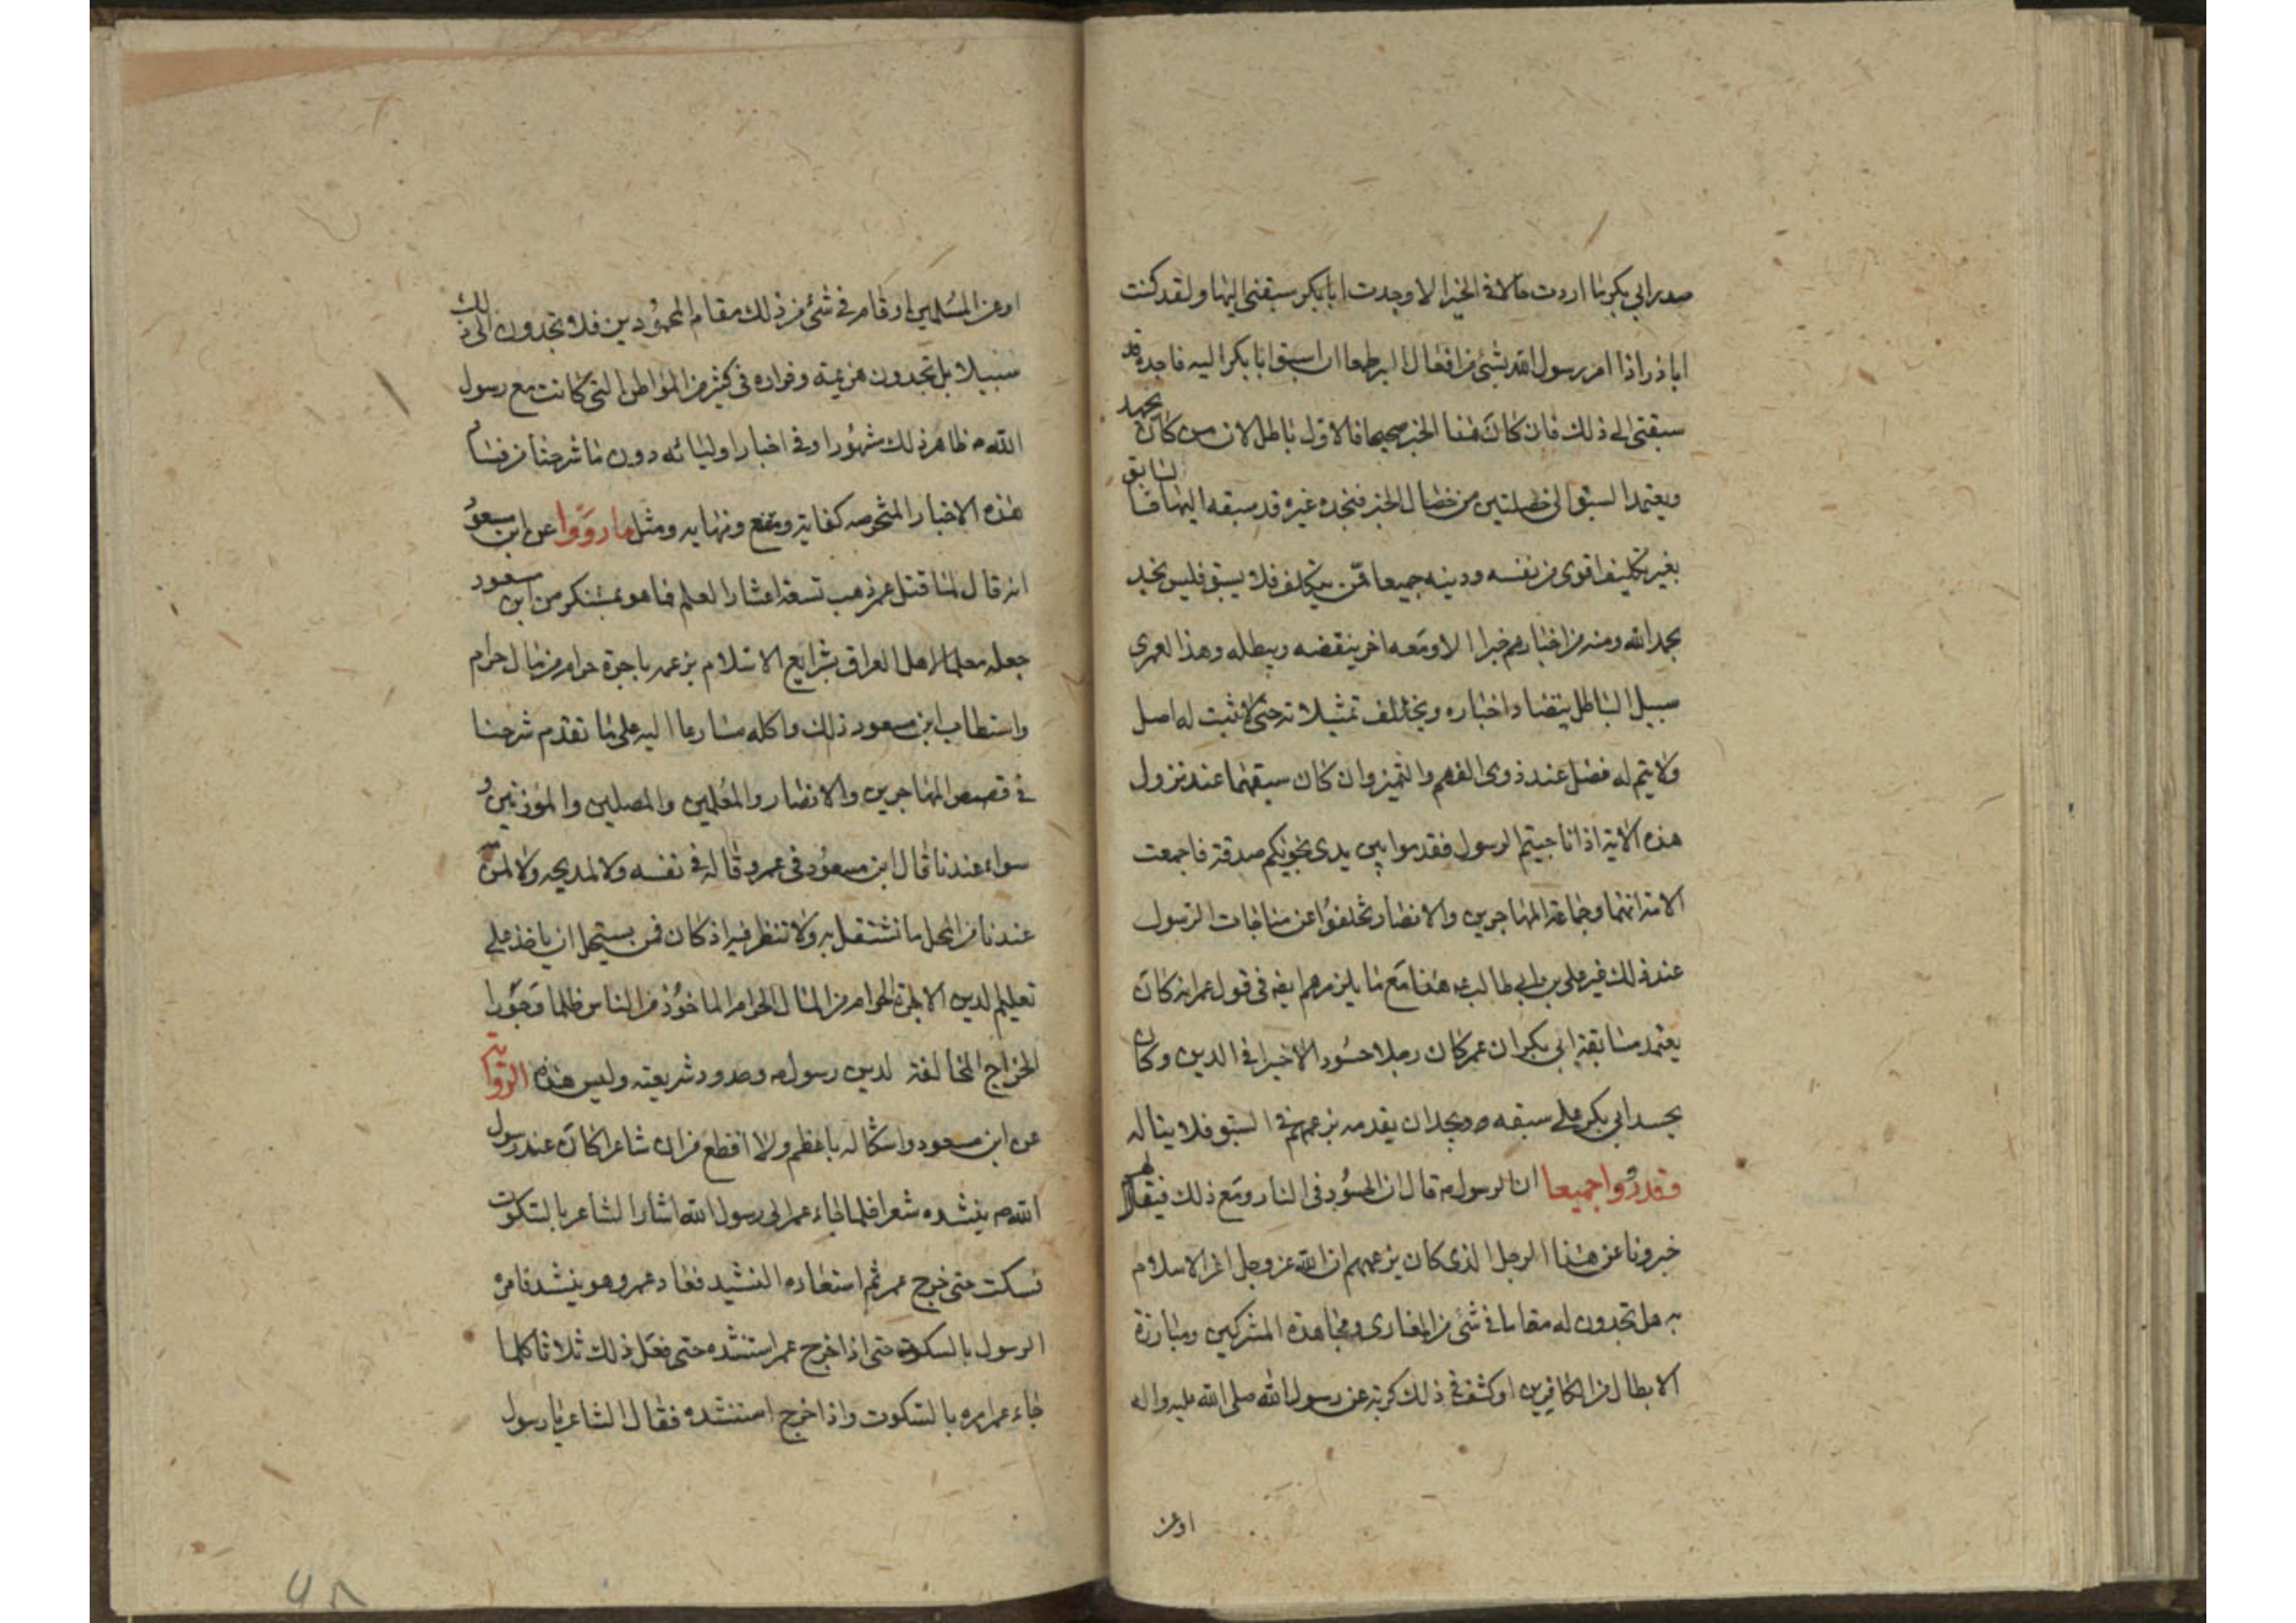 صدر ابي بكر ما اردت حالا في الخير الا وجدت ابا بكر سبقني اليها ولقد كنت
اباذر اذا امر رسول الله بشئ من افعال البر طمعا ان اسبق ابا بكر اليه فاجده قد
سبقني الى ذلك فان كان هذا الخبر صحيحا فالاول باطل لان من كان يجهد
ويعتمد السبق الى خصلتين من خصال الخير فيجده غيره قد سبقه اليها فالسابق
بغير تكليف اقوى من نفسه ودينه جميعا ممن يتكلف فلا يسبق فليس نجد
بحمد الله ومنه من اخبارهم خبرا الا ومعه اخر ينقضه ويبطله وهذا لعمري
سبيل الباطل يتضاد اخباره ويخالف تمثيلاته حتى لا يثبت له اصل
ولا يتم له فضل عند ذوي الفهم والتميز وان كان سبقهما عند نزول
هذه الاية اذا ناجيتم الرسول فقدموا بين يدي نجويكم صدقة فاجمعت
الامة انهما وجماعة المهاجرين والانصار تخلفوا عن مناجات الرسول
عند ذلك غير علي بن ابي طالب ع هذا مع ما يلزمهم ايضا في قول عمر انه كان
يعتمد مسابقة ابي بكر ان عمر كان رجلا حسودا لاخير في الدين وكان
يحسد ابي بكر على سبقه ويجد ان يقدمه بزعمهم في السبق فلا يناله
وقد رووا جميعا ان الرسول ص قال ان الحسود في النار ومع ذلك فيقال لهم
خبرونا عن هذا الرجل الذي كان بزعمهم ان الله عز وجل اعز الاسلام
به هل تجدون له مقاما في شئ من المغازي ومجاهدة المشركين ومبارزة
الابطال من الكافرين او كشف في ذلك كربة عن رسول الله صلى الله عليه واله
او عن
او عن المسلمين او قام في شئ من ذلك مقام المحمودين فلا تجدون الى ذلك
سبيلا بل تجدون هزيمته وفراره في كثير من المواطن التي كانت مع رسول
الله ص ظاهر ذلك مشهورا وفي اخبار اوليائه دون ما شرحنا من فساد
هذه الاخبار كفاية ومقنع ونهاية ومثل ما رووا عن ابن مسعود
انه قال لما قتل عمر ذهب تسعة اعشار العلم فما هو بمستنكر من ابن مسعود
جعله معلما لاهل العراق بشرايع الاسلام بزعمه باجرة حرام من مال حرام
واستطاب ابن مسعود ذلك واكله مسارعا اليه على ما تقدم شرحنا
في قصص المهاجرين والانصار والمعلمين والمصلين والمؤذنين و
سواء عندنا قال ابن مسعود في عمر وقاله في نفسه ولا لمديحه ولا لمذمته
عندنا من المحل ما نشتغل به ولا ننظر فيه اذ كان فمن يستحل ان ياخذ على
تعليم الدين الاجرة الحرام من المال الحرام الماخوذ من الناس ظلما وجورا
الخراج المخالفة لدين رسول ص وحدود شريعته وليس هذه الرواية
عن ابن مسعود واشكاله باعظم ولا افظع من ان شاعرا كان عند رسول
الله ص ينشده شعرا فلما جاء عمر الى رسول الله اشار الشاعر بالسكوت
فسكت حتى خرج عمر ثم استعاده النشيد فعاد عمر وهو ينشد فامره
الرسول بالسكوت حتى اذا خرج عمر استنشده حتى فعل ذلك ثلاثا كلما
جاء عمر امره بالسكوت واذا خرج استنشده فقال الشاعر يا رسول